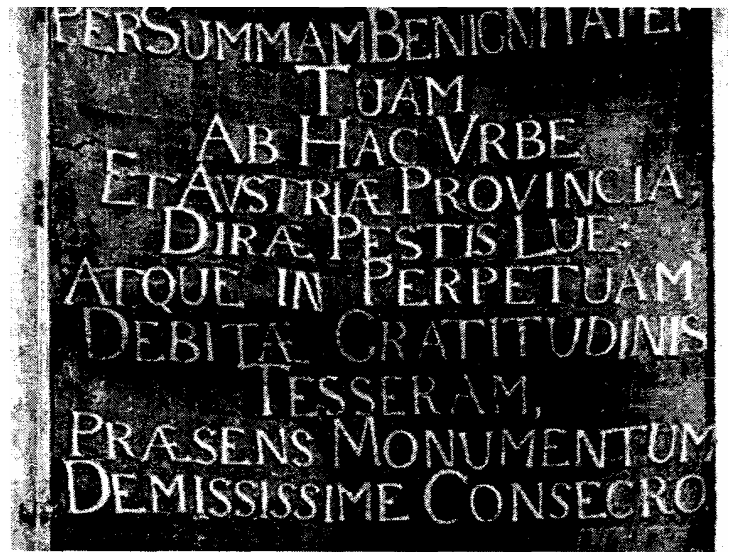 PER SUMMAM BENIGNITATEM
TUAM
AB HAC VRBE
ET AVSTRIÆ PROVINCIA,
DIRÆ PESTIS LUE:
ATQUE IN PERPETUAM
DEBITÆ GRATITUDINIS
TESSERAM,
PRÆSENS MONUMENTUM
DEMISSISSIME CONSECRO